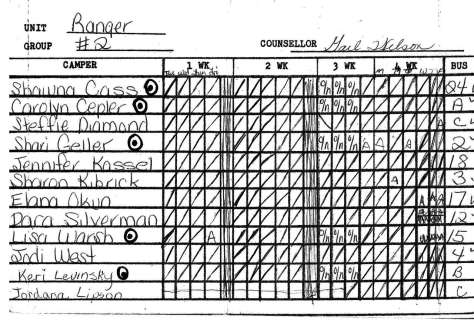 UNIT Ranger
GROUP #2 COUNSELLOR Gail
CAMPER 1 WK 2 WK 3 WK 4 WK BUS
Shawna Cass O/n O/n O/n 24
Carolyn Cepler O/n O/n O/n A
Steffie Diamond A C
Shari Geller O/n O/n O/n A A A 2
Jennifer Kassel 18
Sharon Kibrick A 3
Elana Okun A A A 17
Dara Silverman 12
Lisa Warsh A O/n O/n O/n 15
Jodi West 4
Keri Levinsky O/n O/n O/n B
Jordana Lipson C